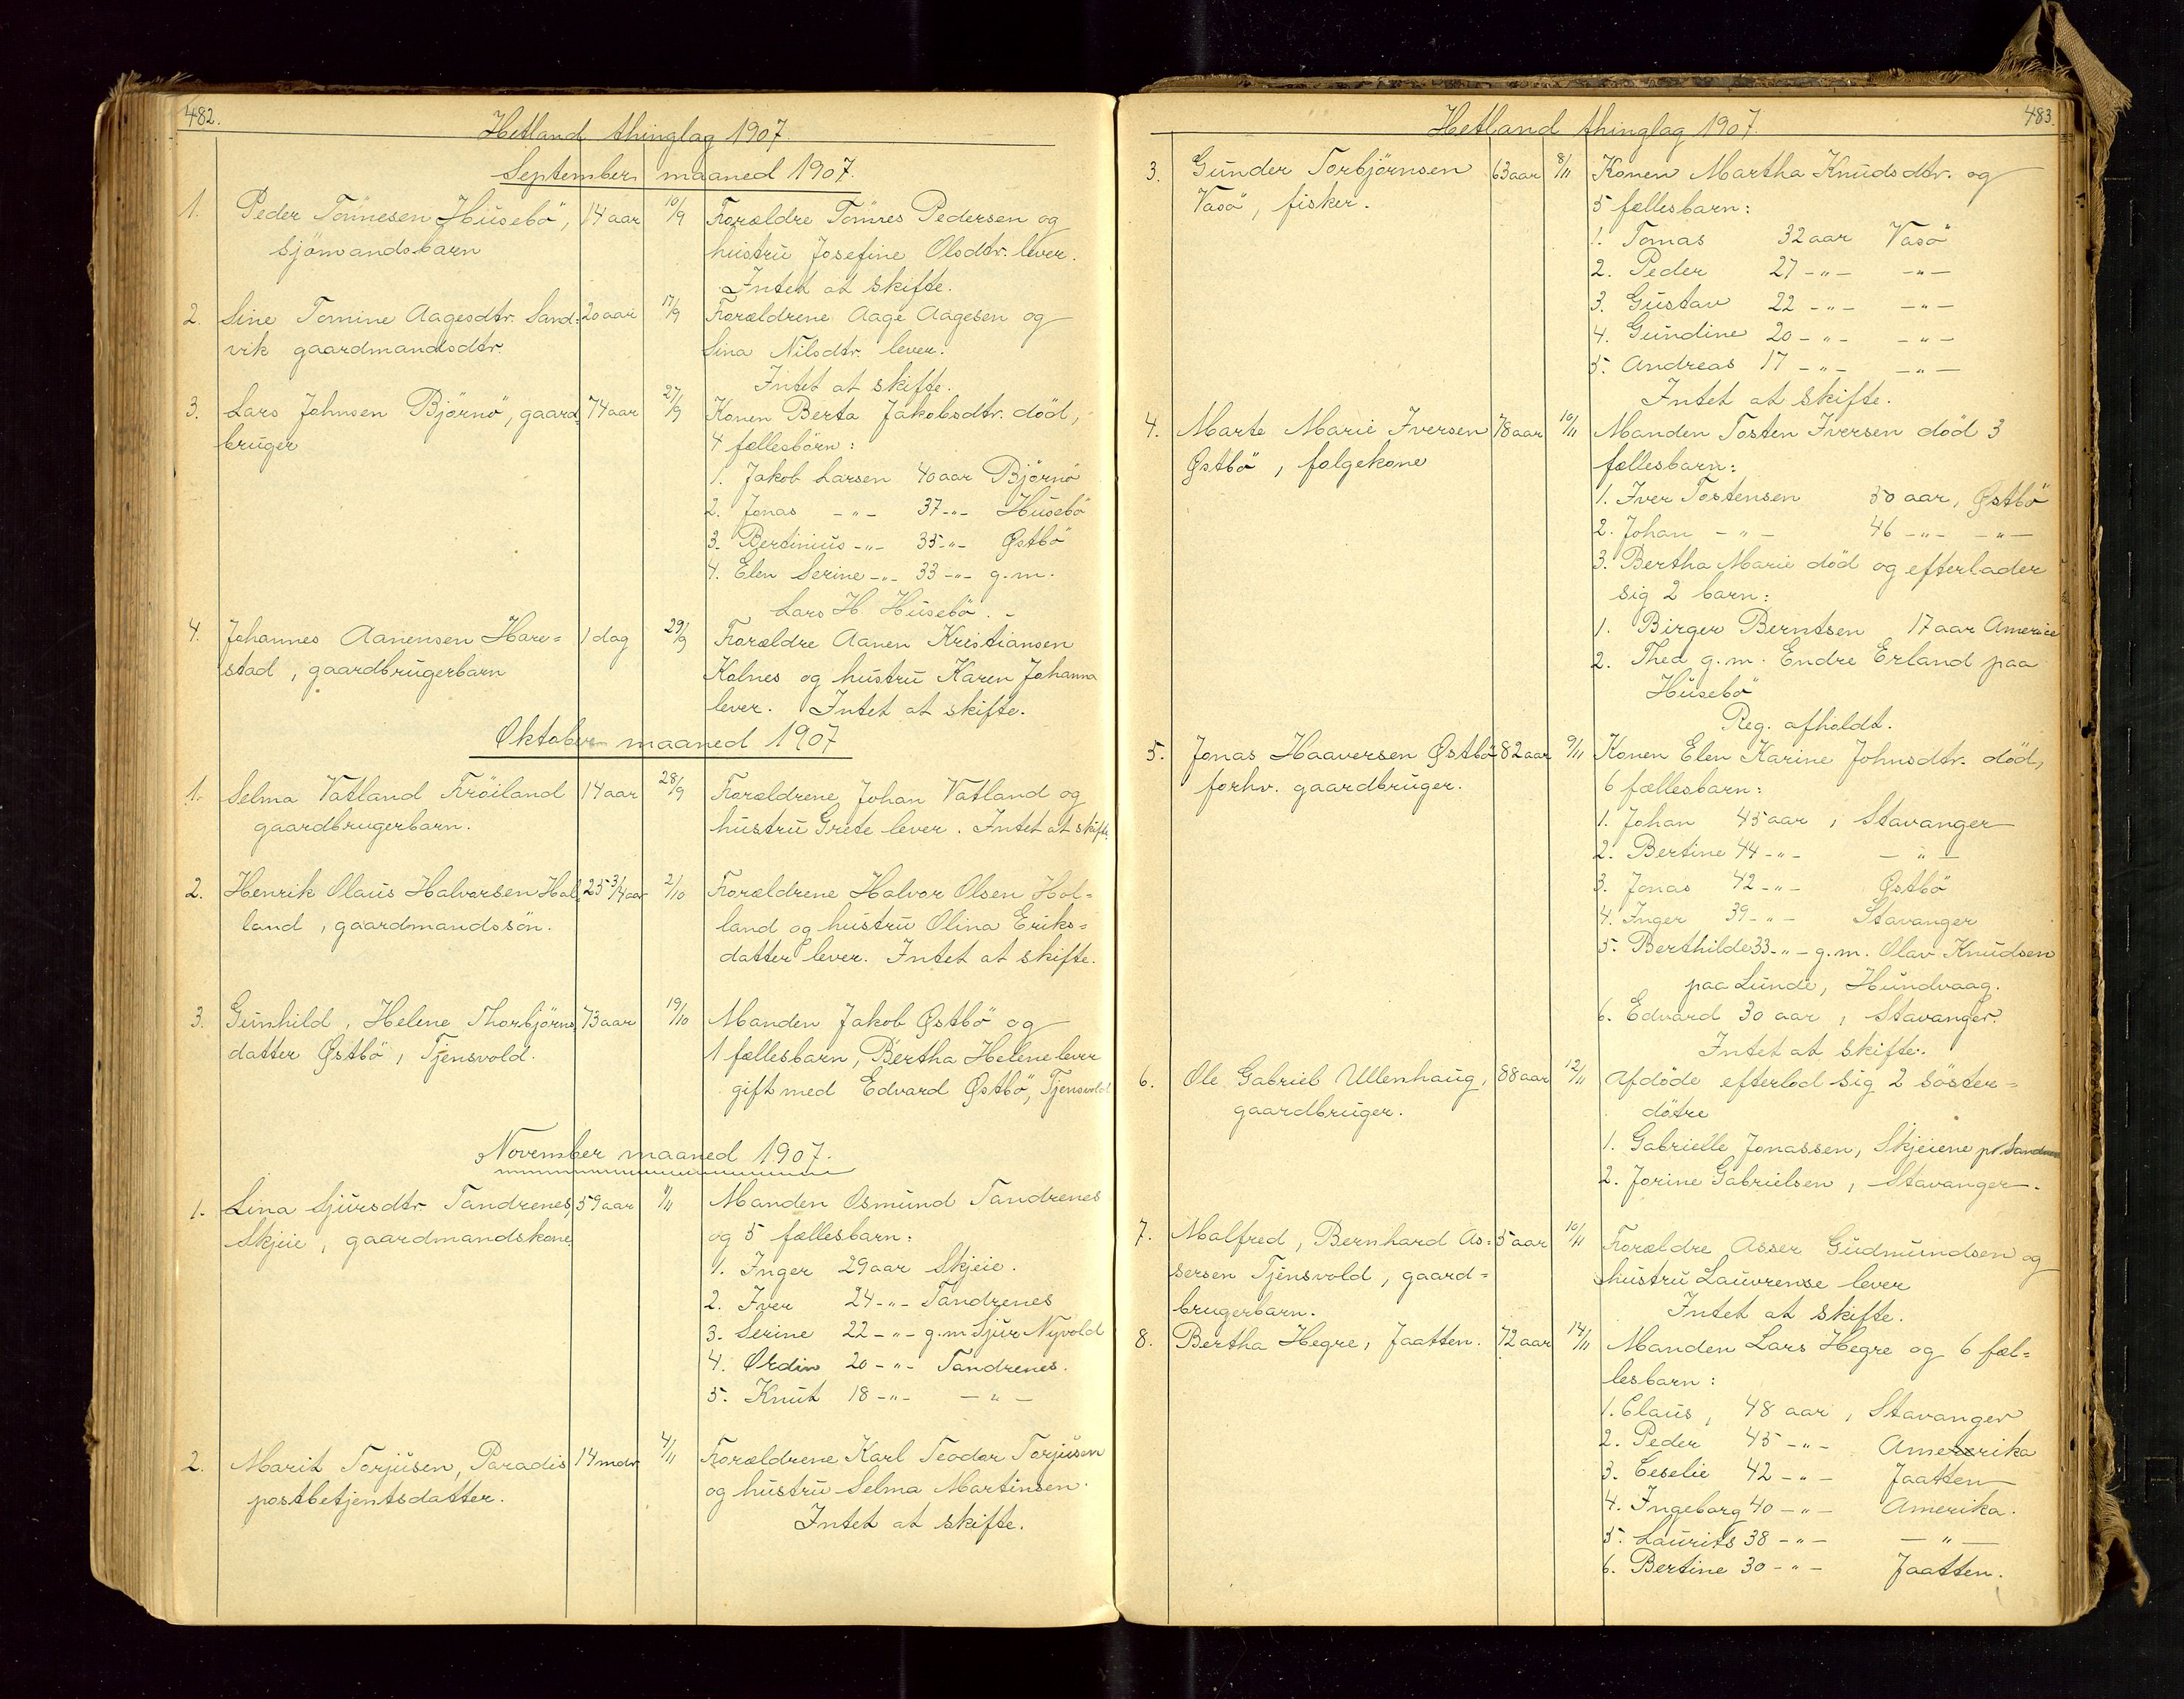 482.
Hetland thinglag 1907.
September maaned 1907.
1. Peder Tönnesen Husebö, 14 aar 10/9 Forældre Tönnes Pedersen og
sjömandsbarn hustru Josefine Olsdtr. lever.
Intet at skifte.
2. Sine Tomine Aagesdtr. Sand= 20 aar 17/9 Forældrene Aage Aagesen og
vik gaardmandsdtr. Sina Nilsdtr. lever.
Intet at skifte.
3. Lars Johnsen Björnö, gaard= 74 aar 27/9 Konen Berta Jakobsdtr. död,
bruger 4 fællesbörn:
1. Jakob Larsen 40 aar Björnö
2. Jonas -"- 37 -"- Husebö
3. Bertinius -"- 35 -"- Østbö
4. Elen Serine -"- 33 -"- g.m.
Lars H. Husebö. -
4. Johannes Aanensen Hare= 1 dag 29/9 Forældre Aanen Kristiansen
stad, gaardbrugerbarn Kolnes og hustru Karen Johanna
lever. Intet at skifte.
Oktober maaned 1907
1. Selma Vatland Fröiland 14 aar 28/9 Forældrene Johan Vatland og
gaardbrugerbarn. hustru Grete lever. Intet at skifte.
2. Henrik Olaus Halvorsen Hol= 25 3/4 aar 2/10 Forældrene Halvor Olsen Hol=
land, gaardmandssön. land og hustru Olina Eriks=
datter lever. Intet at skifte.
3. Gunhild, Helene Thorbjörns 73 aar 19/10 Manden Jakob Østbö og
datter Østbö, Tjensvold. 1 fællesbarn, Bertha Helene lever
gift med Edvard Østbö, Tjensvold
November maaned 1907.
1. Lina Sjursdtr. Tandrenes, 59 aar /11 Manden Osmund Tandrenes
Skjeie, gaardmandskone. og 5 fællesbarn:
1. Inger 29 aar Skjeie.
2. Iver 24 -"- Tandrenes
3. Serine 22 -"- g.m. Sjur Nyvold
4. Ordin 20 -"- Tandrenes.
5. Knut 18 -"- -"-
2. Marit Torjusen, Paradis 14 mdr 4/11 Forældrene Karl Teodor Torjusen
postbetjentsdatter. og hustru Selma Martinsen.
Intet at skifte.
483.
Hetland thinglag 1907.
3. Gunder Torbjörnsen 63 aar 8/11 Konen Martha Knudsdtr. og
Vasö, fisker. 5 fællesbarn:
1. Tomas 32 aar Vasö
2. Peder 27 -"- -"-
3. Gustav 22 -"- -"-
4. Gundine 20 -"- -"-
5. Andreas 17 -"- -"-
Intet at skifte.
4. Marte Marie Iversen 78 aar 10/11 Manden Tosten Iversen död 3
Østbö, folgekone fællesbarn:
1. Iver Tostensen 50 aar, Østbö
2. Johan -"- 46 -"- -"-
3. Bertha Marie död og efterlader
sig 2 barn:
1. Birger Berntsen 17 aar America
2. Thea g.m. Endre Erland paa
Husebö
Reg. afholdt.
5. Jonas Haaversen Østbö 82 aar 9/11 Konen Elen Karine Johnsdtr. död,
forhv. gaardbruger. 6 fællesbarn:
1. Johan 45 aar, Stavanger
2. Bertine 44 -"- -"-
3. Jonas 42 -"- Østbö
4. Inger 39 -"- Stavanger
5. Berthilde 33 -"- g.m. Olav Knudsen
paa Lunde, Hundvaag.
6. Edvard 30 aar, Stavanger.
Intet at skifte.
6. Ole Gabriel Ullenhaug, 88 aar 12/11 Afdöde efterlod sig 2 söster=
gaardbruger. dötre
1. Gabrielle Jonassen, Skjeiene pr Sandnes
2. Jorine Gabrielsen, Stavanger.
7. Malfred, Bernhard As= 5 aar 10/11 Forældre Asser Gudmundsen og
sersen Tjensvold, gaard= hustru Lauvrense lever
brugerbarn. Intet at skifte.
8. Bertha Hegre, Jaatten. 72 aar 14/11 Manden Lars Hegre og 6 fæl=
lesbarn:
1. Claus, 48 aar, Stavanger
2. Peder 45 -"- Amerika
3. Ceselie 42 -"- Jaatten
4. Ingeborg 40 -"- Amerika.
5. Laurits 38 -"- -"-
6. Bertine 30 -"- Jaatten.